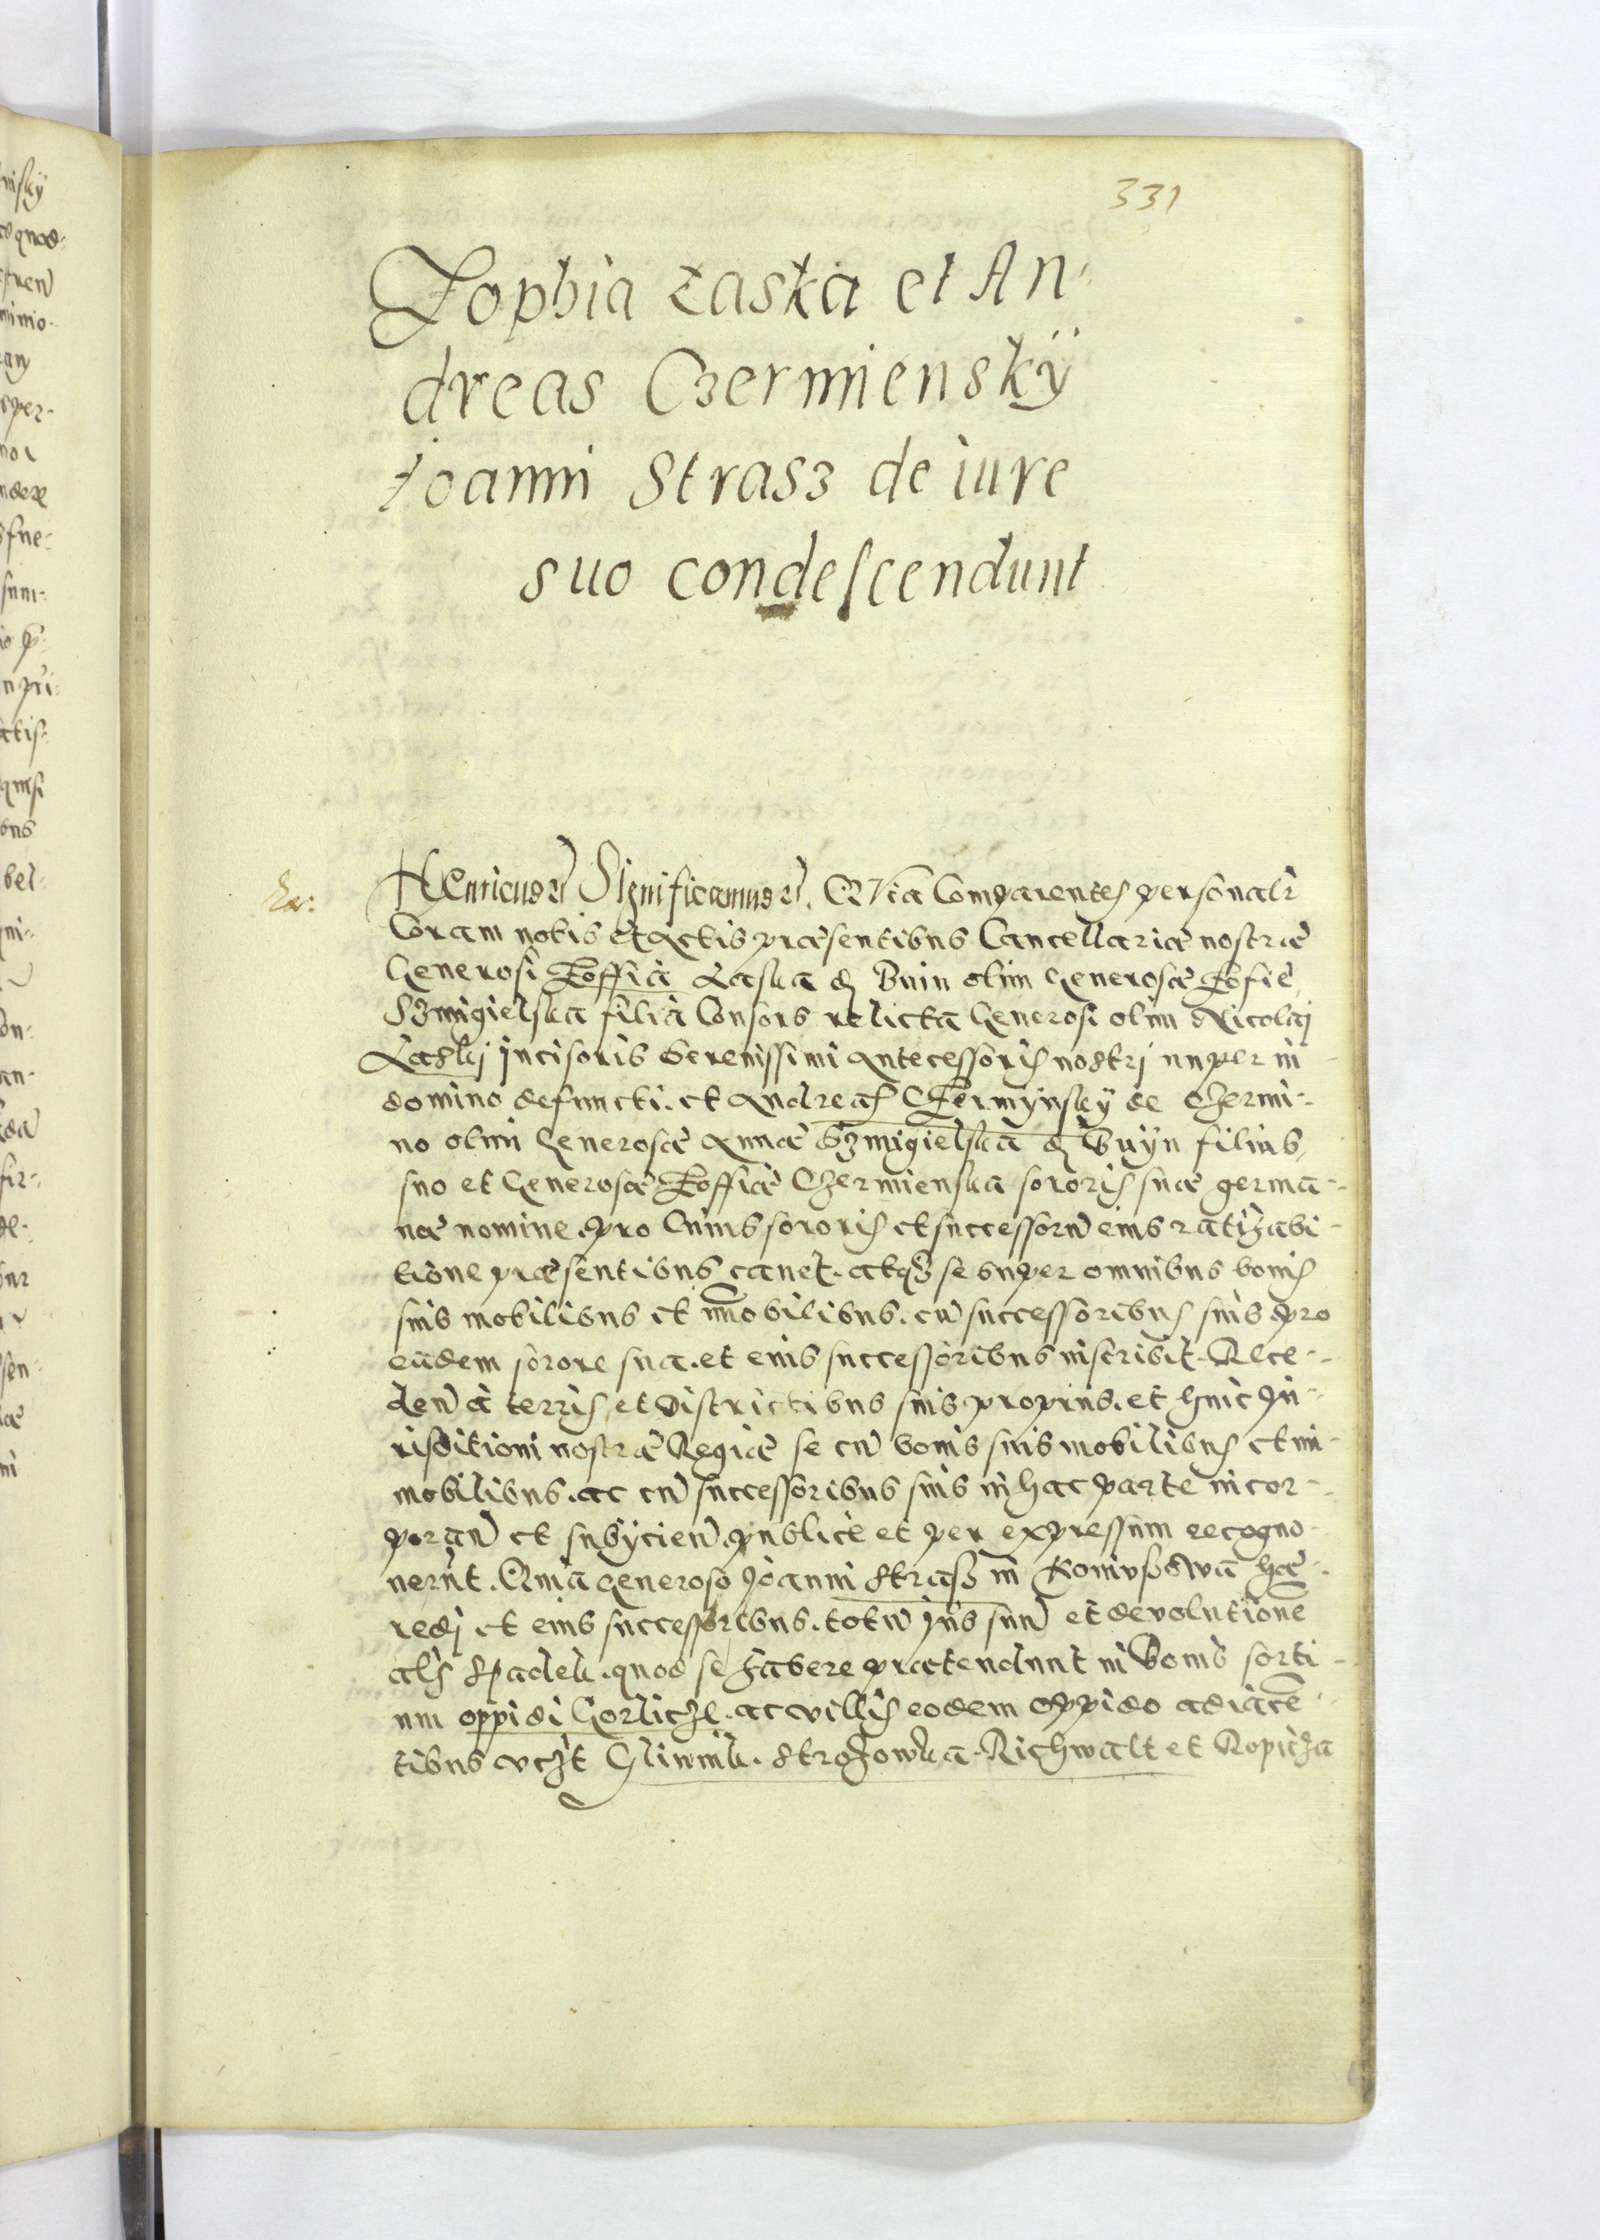 331
Zophia Łaska et An-
dreas Czermienskÿ
Ioanni Strasz de iure
suo condescendunt
Henricus etc. Significamus etc. Quia Comparentes personalr
Coram nobis et Actis præsentibus Cancellariæ nostræ
Generosi Zoffia Laska de Buin olim Generosæ Zofie
Szmigielska filia Consors relicta Generosi olim Nicolaj
Laskj Incisoris Serenissimi Antecessoris nostrj nuper in
domino defuncti. et Andreas Czermÿnskÿ de Czermi-
no olim Generosæ Annæ Szmigielska de Buÿn filius,
suo et Generosæ Zoffiæ Czermienska sororis suæ germa-
næ nomine. pro Cuius sororis et successorū eius ratihabi-
tione præsentibus cauet. atqȝ se super omnibus bonis
suis mobilibus et immobilibus. cū successoribus suis pro
eadem sorore sua. et eius successoribus inscribit. Rece-
den̄ a terris et districtibus suis proprijs. et huic Iu-
risditioni nostræ Regiæ se cū bonis suis mobilibus et im-
mobilibus. ac cū successoribus suis in hac parte incor-
poran̄ et subÿcien̄. publice et per expressum recogno-
uerūt. Quia generoso Joanni Strasz in hæ-
redj et eius successoribus. totū Jus suū et deuolutionē
als Spadek. quod se habere prætendunt in Bonis sorti-
um oppidi Gorlicze. ac villis eodem oppido adiacē-
tibus vczt Glinnik. Strozowka. Richwalt et Ropicza